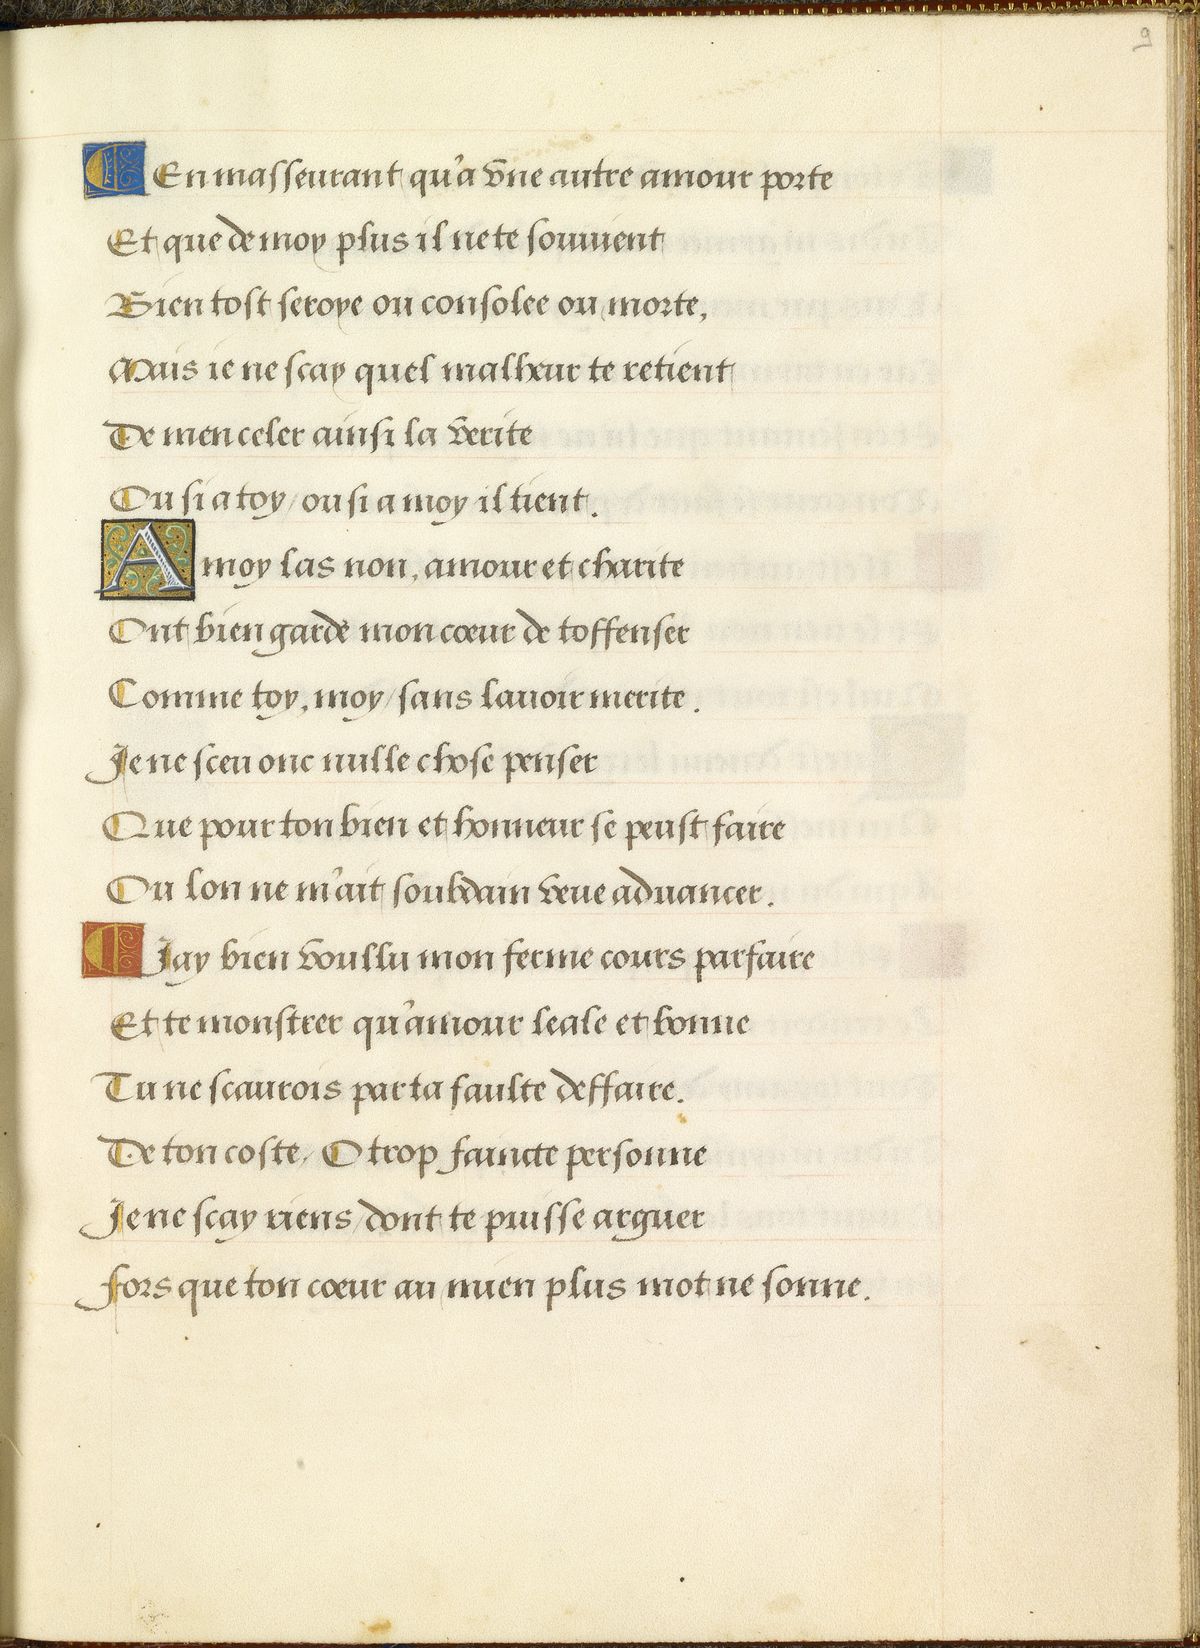 9
En masseurant qu'a vne autre amour porte
Et que de moy plus il ne te souuient
Bien tost seroye ou consolee ou morte,
Mais ie ne scay quel malheur te retient
De men celer ainsi la verite
Ou si a toy / ou si a moy il tient.
A moy las non, amour et charite
Ont bien garde mon cœur de toffenser
Comme toy, moy / sans lauoir merite.
Je ne sceu onc nulle chose penser
Que pour ton bien et honneur se peust faire
Ou lon ne m'ait soubdain veue aduancer.
Jay bien voullu mon ferme cours parfaire
Et te monstrer qu'amour leale et bonne
Tu ne scaurois par ta faulte deffaire.
De ton coste / O trop faincte personne
Je ne scay riens / dont te puisse arguer
fors que ton cœur au mien plus mot ne sonne.